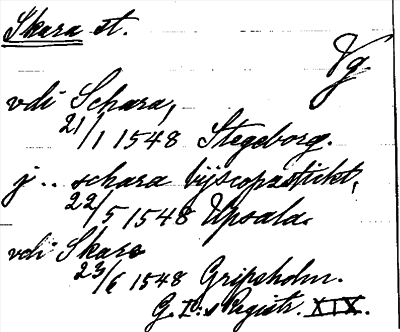 Skara st.
Vg
vdi Schara,
21/1 1548 Stegeborg.
j .. schara bijscopzstickt,
22/5 1548 Upsala.
vdi Skare
23/6 1548 Gripsholm.
G. I:s Registr. XIX.